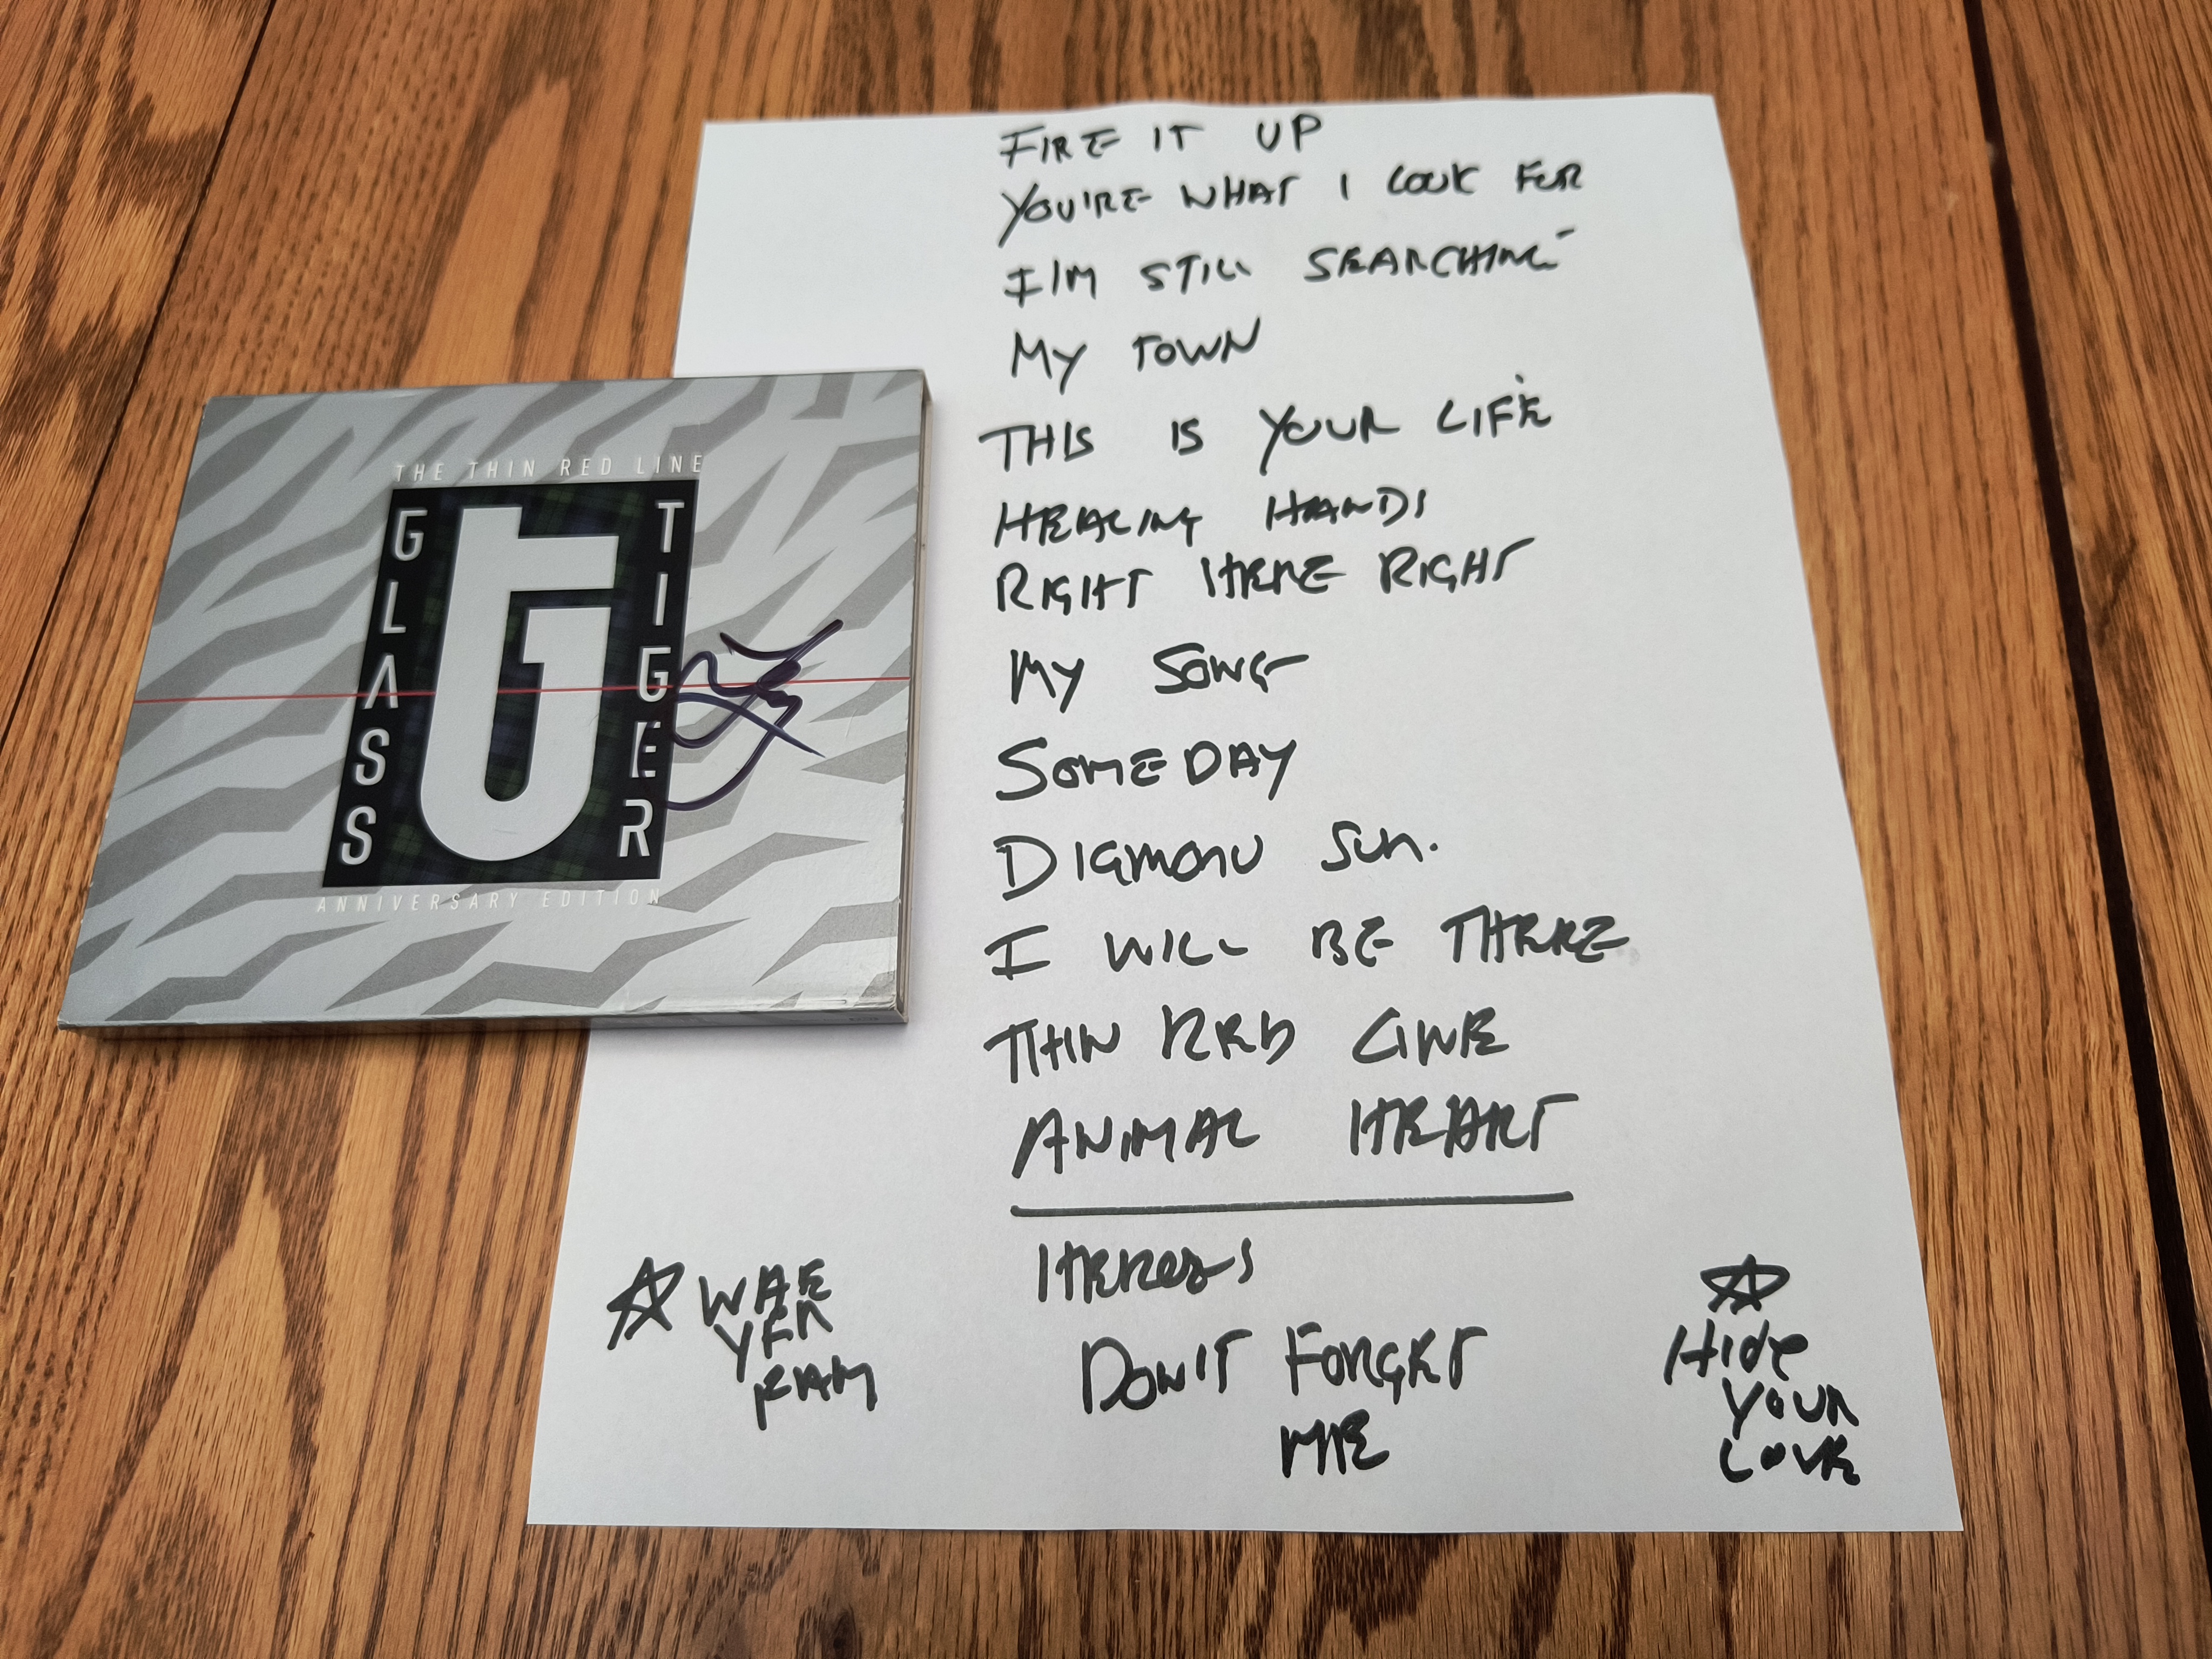 THE THIN RED LINE
GLASS
TIGER
ANNIVERSARY EDITION
FIRE IT UP
YOU'RE WHAT I LOOK FOR
I'M STILL SEARCHING
MY TOWN
THIS IS YOUR LIFE
HEALING HANDS
RIGHT HERE RIGHT
MY SONG
SOMEDAY
DIAMOND SUN.
I WILL BE THERE
THIN RED LINE
ANIMAL HEART
HEROES
DON'T FORGET
ME
WAE
YER
FAM
Hide
YOUR
LOVE